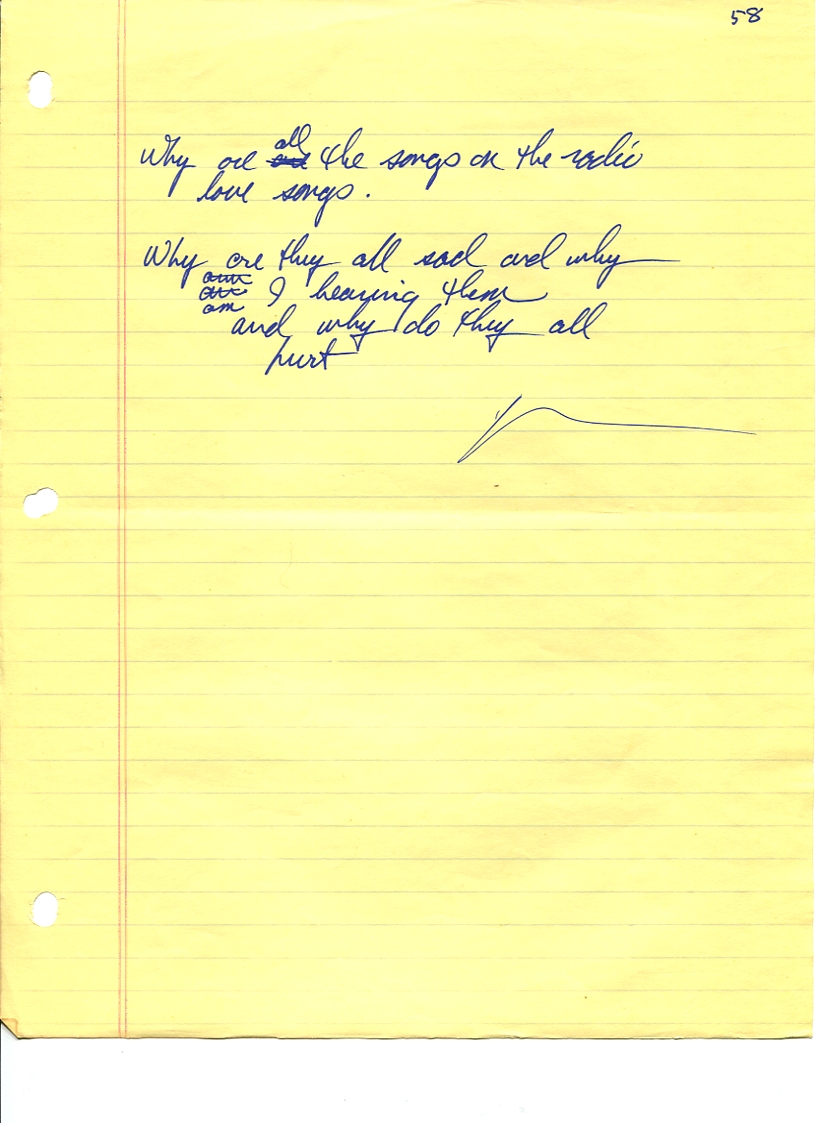 58
Why are all the songs on the radio
love songs.
Why are they all sad and why
am I hearing them
and why do they all
hurt